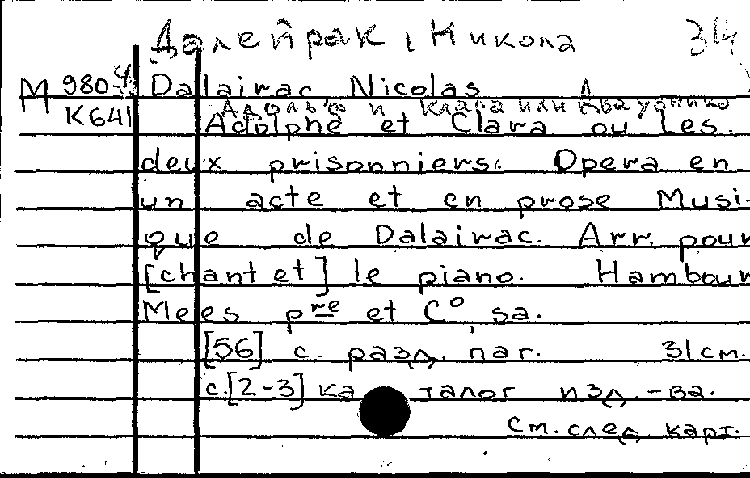 Далейрак, Никола 314
М 980-4 Dalairac Nicolas
Адольф и Клара или Два узника
К641 Adolphe et Clara ou les
deux prisonniers. Opera en
un acte et en prose Musi-
que de Dalairac. Arr. pour
[chant et] le piano. Hambour
Mees pre et Co, sa.
[56] с. разд. паг. 31 см.
с.[2-3] каталог изд.-ва.
См. след. карт.